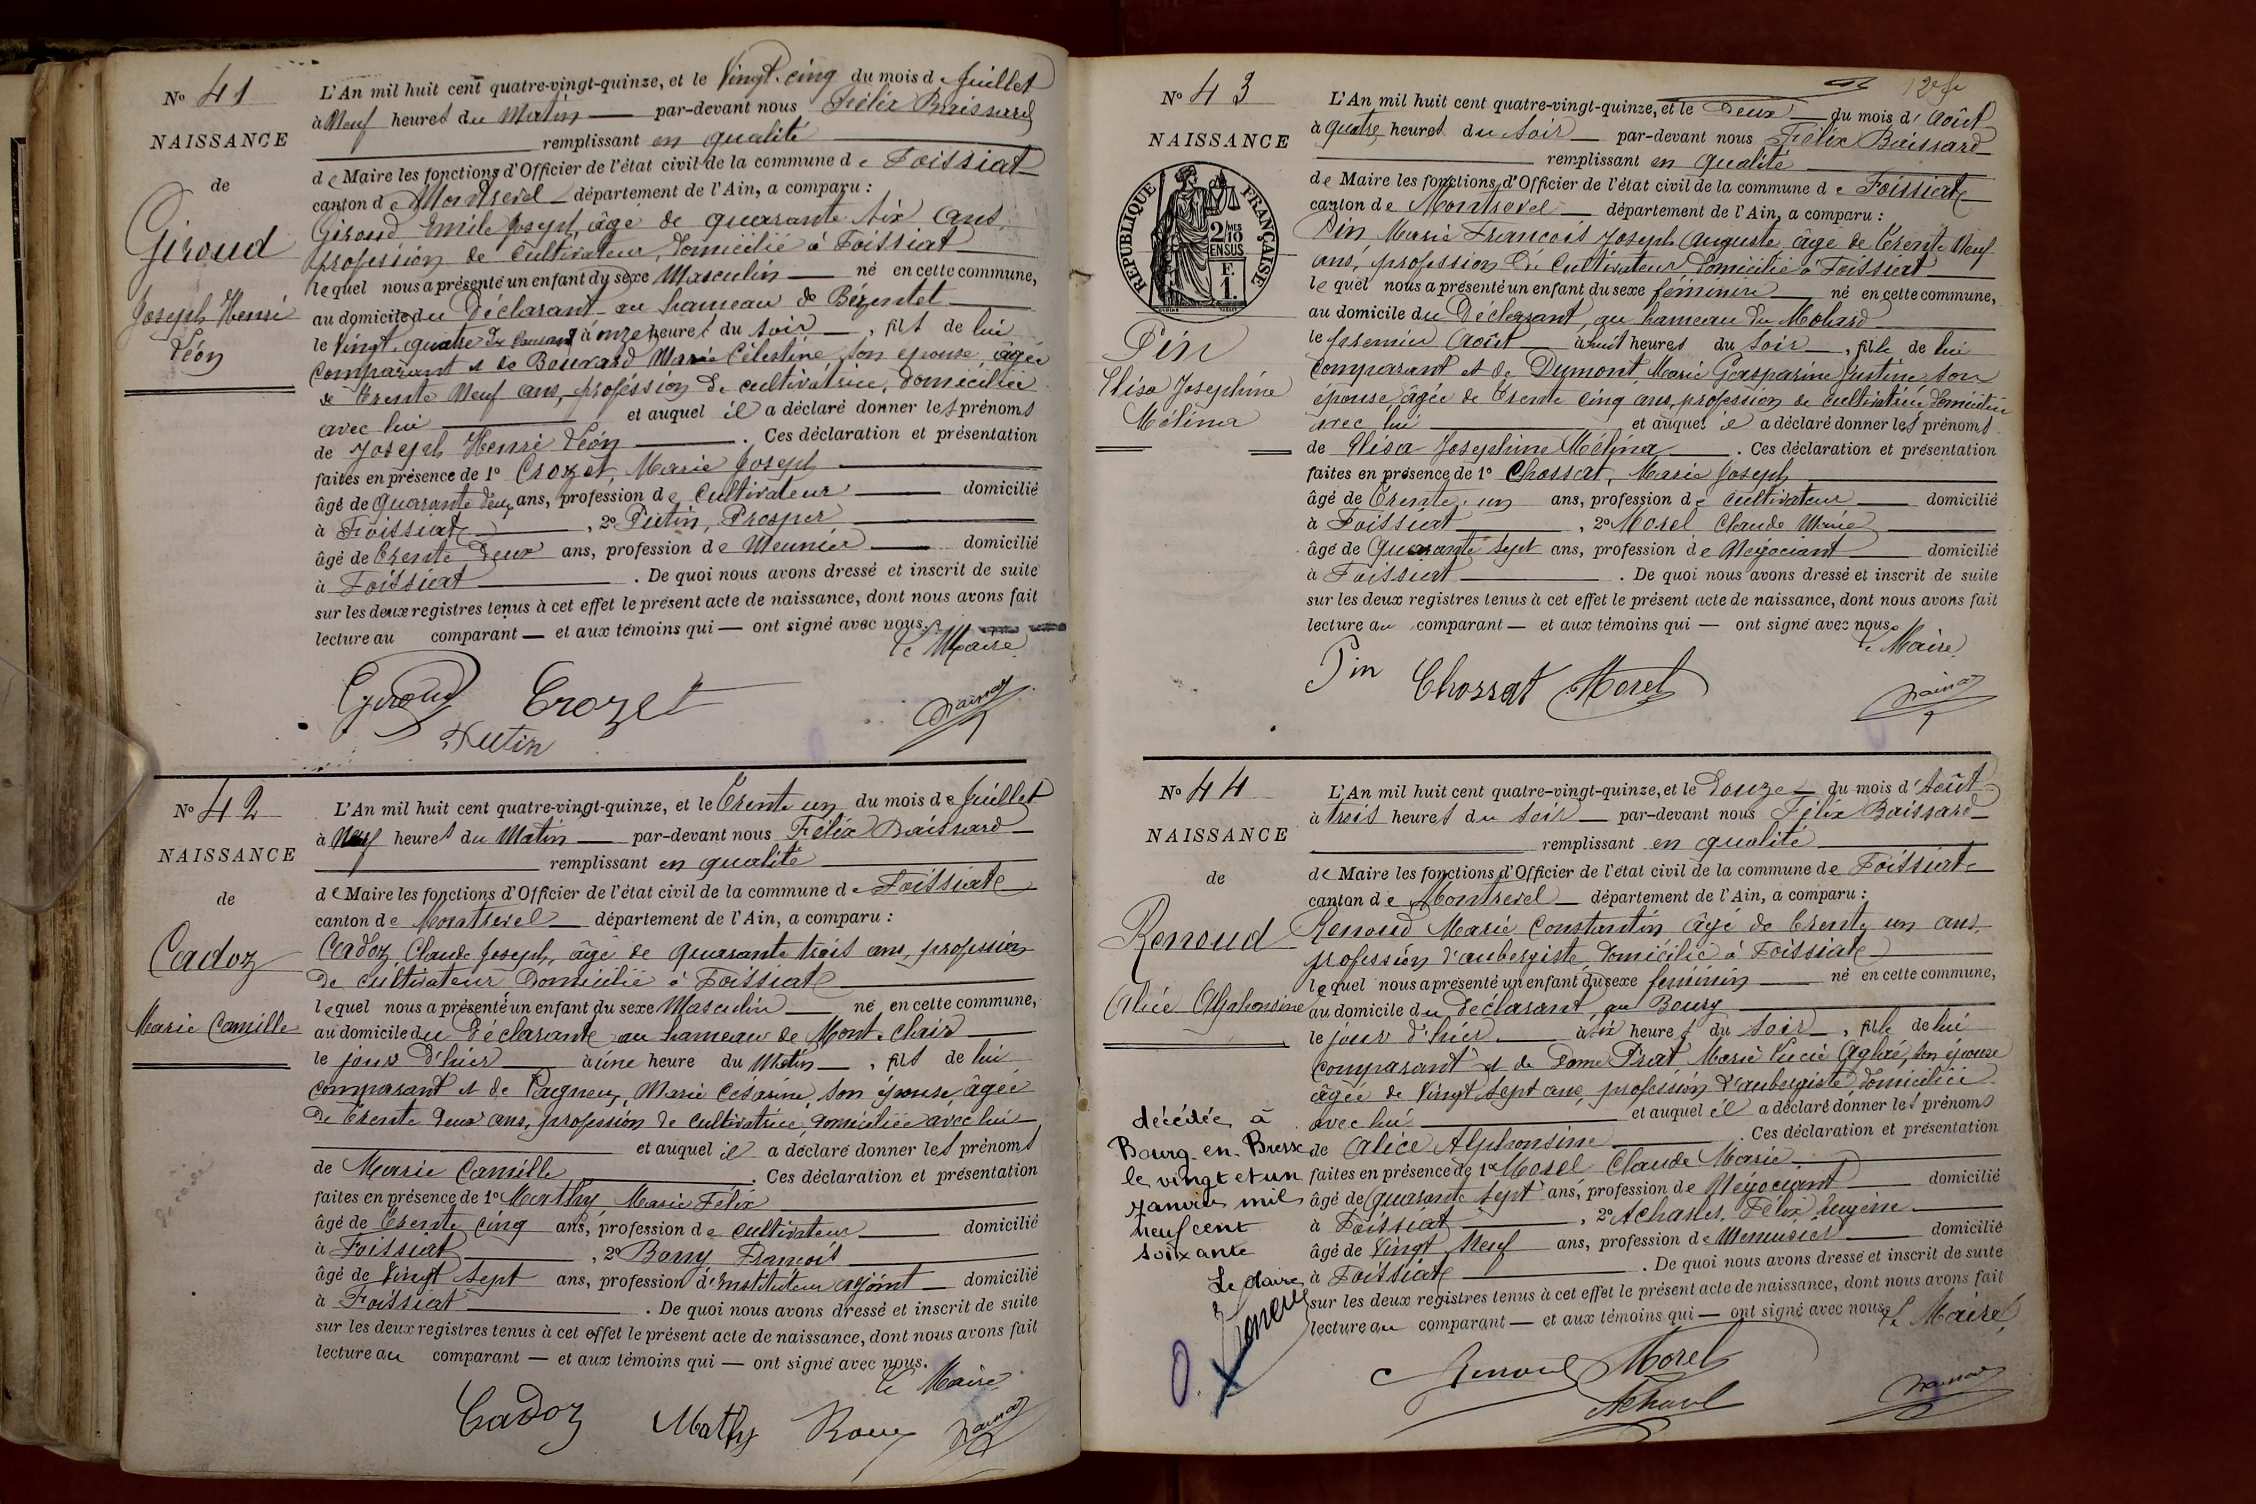 No 41
NAISSANCE
de
Giroud
Joseph Henri
Léon
L'An mil huit cent quatre-vingt-quinze, et le Vingt-cinq du mois de Juillet
à Neuf heures du Matin par-devant nous Félix Baissard
remplissant en qualité
de Maire les fonctions d'Officier de l'état civil de la commune de Foissiat
canton de Montrevel département de l'Ain, a comparu :
Giroud Emile Joseph, âgé de quarante six ans,
profession de cultivateur, domicilié à Foissiat
lequel nous a présenté un enfant du sexe Masculin né en cette commune,
au domicile du Déclarant au hameau de Bézentet
le Vingt quatre du courant à onze heures du soir, fils de lui
comparant et de Bouvard Marie Célestine son épouse, âgée
de trente Neuf ans, profession de cultivatrice, domiciliée
avec lui et auquel il a déclaré donner les prénoms
de Joseph Henri Léon. Ces déclaration et présentation
faites en présence de 1o Crozet, Marie Joseph
âgé de quarante deux ans, profession de Cultivateur domicilié
à Foissiat, 2o Putin, Prosper
âgé de trente deux ans, profession de Meunier domicilié
à Foissiat. De quoi nous avons dressé et inscrit de suite
sur les deux registres tenus à cet effet le présent acte de naissance, dont nous avons fait
lecture au comparant — et aux témoins qui — ont signé avec nous.
Le Maire
Giroud Crozet
Putin
No 42
NAISSANCE
de
Cadoz
Marie Camille
L'An mil huit cent quatre-vingt-quinze, et le trente un du mois de Juillet
à Neuf heures du Matin par-devant nous Félix Baissard
remplissant en qualité
de Maire les fonctions d'Officier de l'état civil de la commune de Foissiat
canton de Montrevel département de l'Ain, a comparu :
Cadoz, Claude Joseph, âgé de quarante trois ans, profession
de cultivateur domicilié à Foissiat
lequel nous a présenté un enfant du sexe Masculin né en cette commune,
au domicile du Déclarant au hameau de Mont-Chair
le jour d'hier à une heure du Matin, fils de lui
comparant et de Pagneux, Marie Césarine, son épouse, âgée
de trente deux ans, profession de cultivatrice, domiciliée avec lui
et auquel il a déclaré donner les prénoms
de Marie Camille. Ces déclaration et présentation
faites en présence de 1o Mathy Marie Félix
âgé de trente cinq ans, profession de cultivateur domicilié
à Foissiat, 2o François
âgé de Vingt sept ans, profession d'Instituteur adjoint domicilié
à Foissiat. De quoi nous avons dressé et inscrit de suite
sur les deux registres tenus à cet effet le présent acte de naissance, dont nous avons fait
lecture au comparant — et aux témoins qui — ont signé avec nous.
Le Maire
Cadoz Mathy
No 43
NAISSANCE
RÉPUBLIQUE FRANÇAISE
2 MES
10
EN SUS
F.
1.
Pin
Elisa Joséphine
Mélina
L'An mil huit cent quatre-vingt-quinze, et le Deux du mois d'Août
à quatre heures du soir par-devant nous Félix Baissard
remplissant en qualité
de Maire les fonctions d'Officier de l'état civil de la commune de Foissiat
canton de Montrevel département de l'Ain, a comparu :
Pin, Marie François Joseph Auguste âgé de trente Neuf
ans, profession de cultivateur domicilié à Foissiat
lequel nous a présenté un enfant du sexe féminin né en cette commune,
au domicile du Déclarant, au hameau du Molard
le premier Août à huit heures du soir, fille de lui
comparant et de Dumont, Marie Gasparine Justine son
épouse âgée de trente cinq ans, profession de cultivatrice domiciliée
avec lui et auquel il a déclaré donner les prénoms
de Elisa Joséphine Mélina. Ces déclaration et présentation
faites en présence de 1o Chossat, Marie Joseph
âgé de trente un ans, profession de cultivateur domicilié
à Foissiat, 2o Morel Claude Marie
âgé de quarante sept ans, profession de Négociant domicilié
à Foissiat. De quoi nous avons dressé et inscrit de suite
sur les deux registres tenus à cet effet le présent acte de naissance, dont nous avons fait
lecture au comparant — et aux témoins qui — ont signé avec nous.
Le Maire
Pin Chossat Morel
No 44
NAISSANCE
de
Renoud
Alice Alphonsine
L'An mil huit cent quatre-vingt-quinze, et le Douze du mois d'Août
à trois heures du soir par-devant nous Félix Baissard
remplissant en qualité
de Maire les fonctions d'Officier de l'état civil de la commune de Foissiat
canton de Montrevel département de l'Ain, a comparu :
Renoud Marie Constantin âgé de trente un ans,
profession d'aubergiste, domicilié à Foissiat
lequel nous a présenté un enfant du sexe féminin né en cette commune,
au domicile du Déclarant, au Bourg
le jour d'hier à six heures du soir, fille de lui
comparant et de Dame Prat Marie Lucie Aglaé, son épouse
âgée de Vingt sept ans, profession d'aubergiste domiciliée
avec lui et auquel il a déclaré donner les prénoms
de Alice Alphonsine. Ces déclaration et présentation
faites en présence de 1o Morel Claude Marie
âgé de quarante sept ans, profession de Négociant domicilié
à Foissiat, 2o Félix Eugène
âgé de Vingt Neuf ans, profession de Menuisier domicilié
à Foissiat. De quoi nous avons dressé et inscrit de suite
sur les deux registres tenus à cet effet le présent acte de naissance, dont nous avons fait
lecture au comparant — et aux témoins qui — ont signé avec nous.
Le Maire
décédée à
Bourg-en-Bresse
le vingt et un
janvier mil
neuf cent
soixante
Le Maire
Renoud Morel